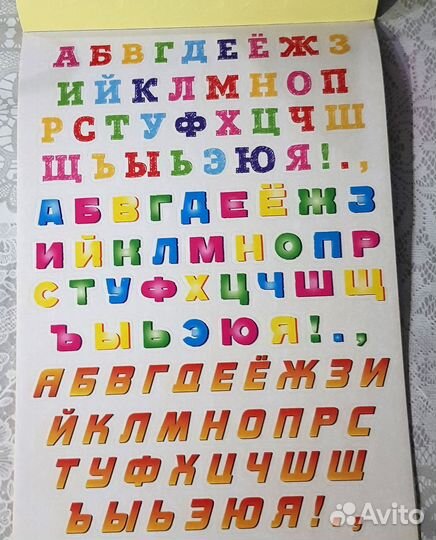 АБВГДЕЁЖЗ
ИЙКЛМНОП
РСТУФХЦЧШ
ЩЪЫЬЭЮЯ!.,
АБВГДЕЁЖЗ
ИЙКЛМНОПР
СТУФХЦЧШЩ
ЪЫЬЭЮЯ!.,
АБВГДЕЁЖЗИ
ЙКЛМНОПРС
ТУФХЦЧШЩ
ЪЫЬЭЮЯ!.,
Avito